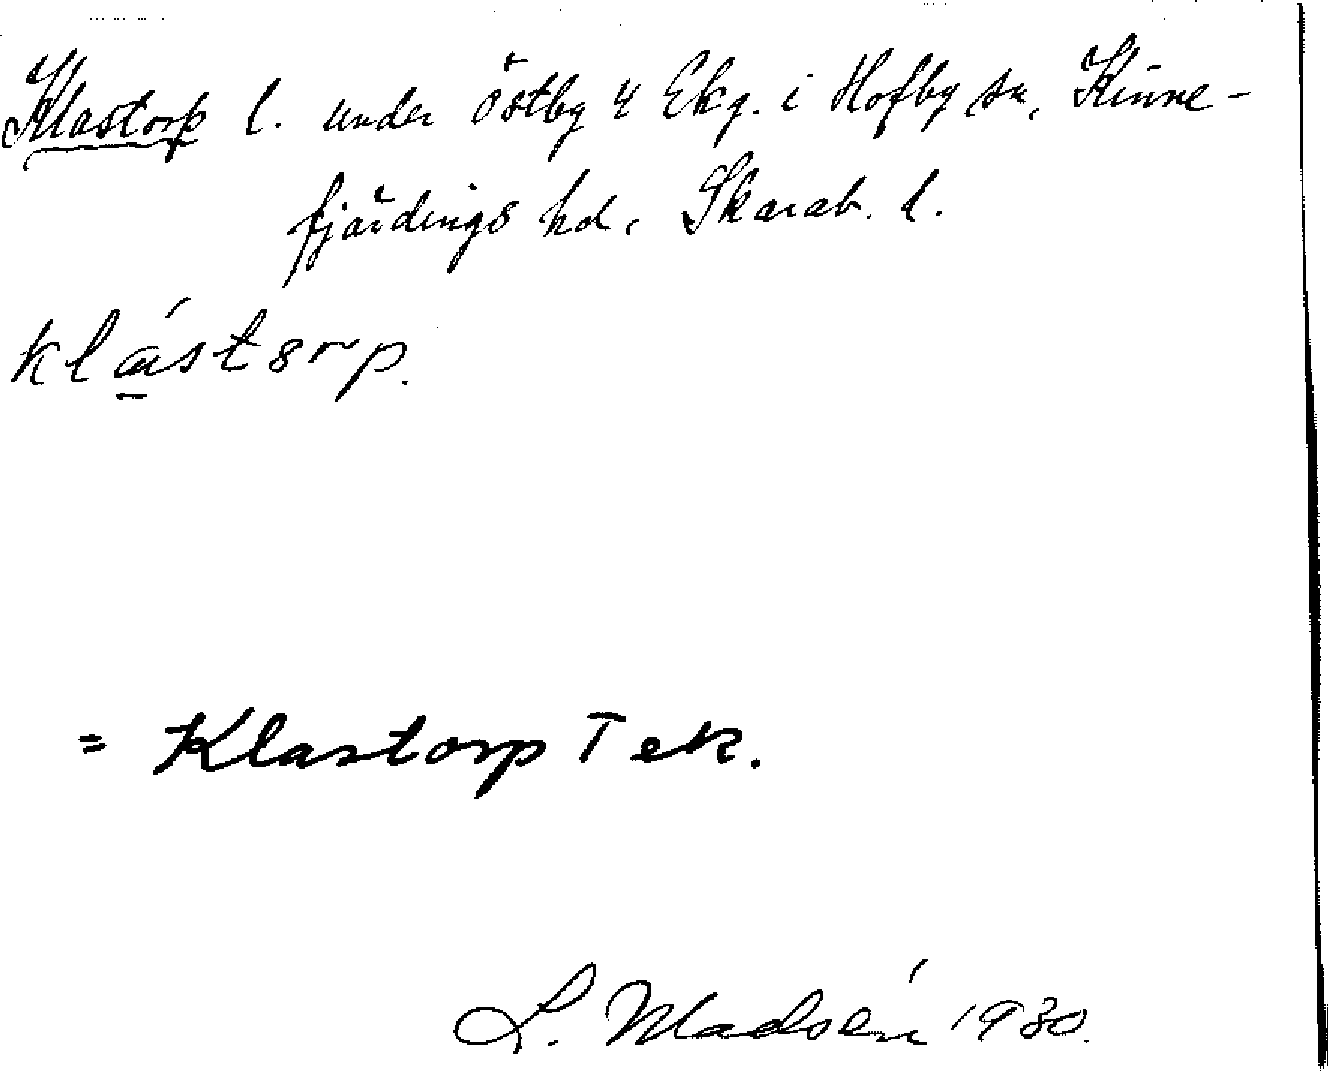 Klastorp l. under Östby 4 Ekg. i Hofby sn, Kinne-
fjärdings hd, Skarab. l.
klástorp.
= Klastorp Tek.
L. Madsén 1930.